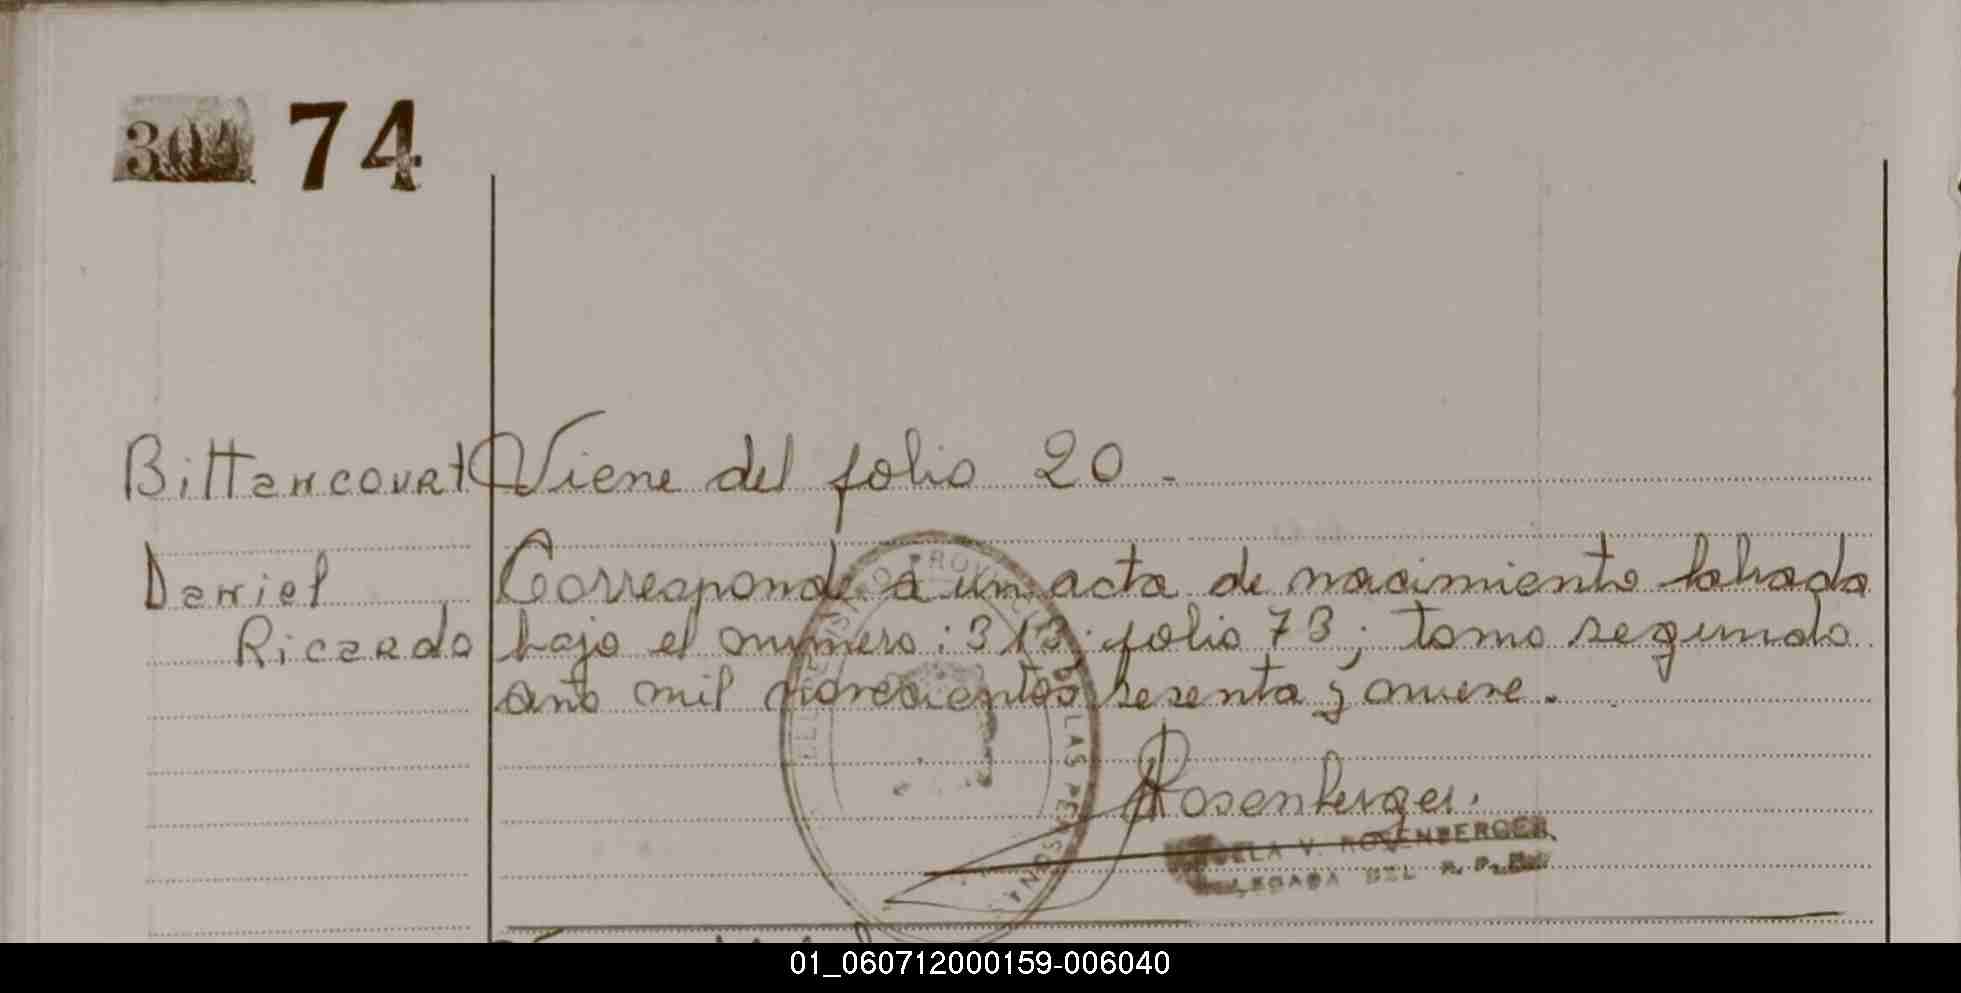 304 74
Bittencourt Viene del folio 20.
Daniel Corresponde a un acta de nacimiento labrada
Ricardo bajo el número: 313: folio 73; tomo segundo
año mil novecientos sesenta y nueve.
Rosenberger.
V. ROSENBERGER
DEL R. P.
LAS PERSONAS
01_060712000159-006040